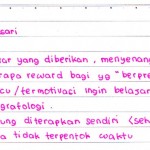 sari
ar yang diberikan, menyenang
rapa reward bagi yg "berpre
cu/termotivasi ingin belajar
grafologi.
ung diterapkan sendiri (seh
a tidak terpentok waktu